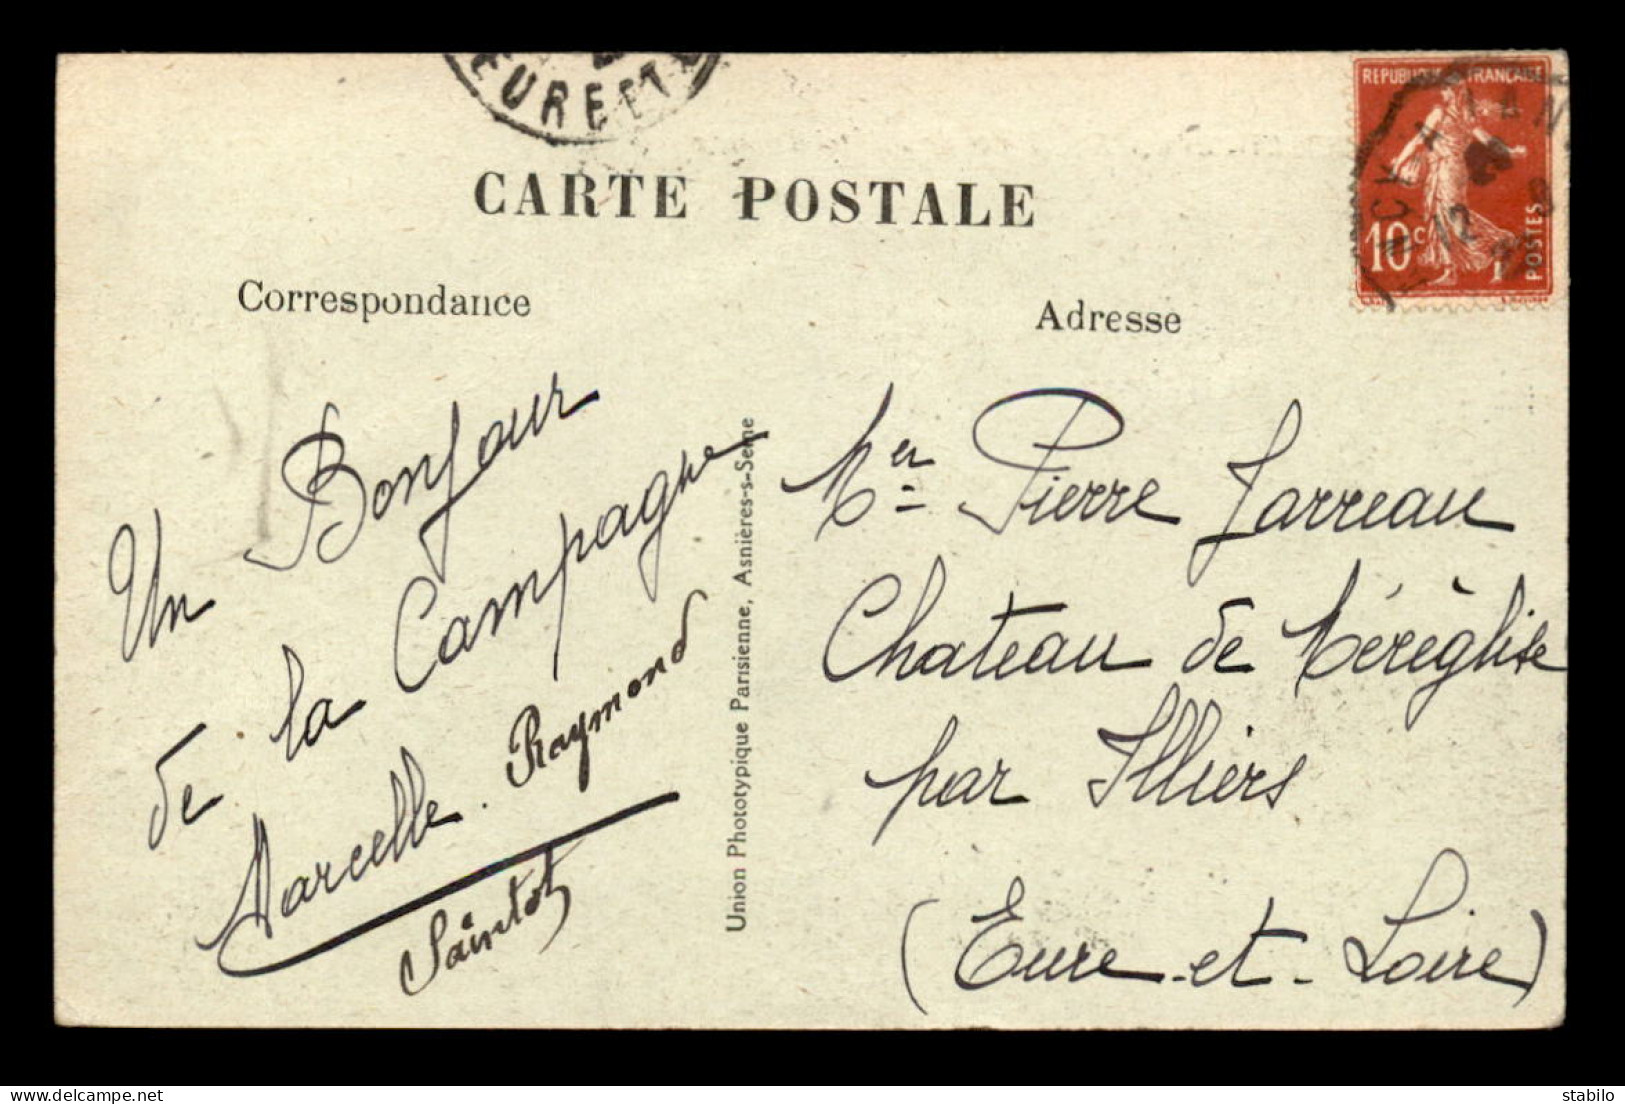 EURE ET L
REPUBLIQUE FRANÇAISE
10c
POSTES
12
CARTE POSTALE
Correspondance
Adresse
Un Bonjour
de la Campagne
Marcelle. Raymond
Saintot
Union Phototypique Parisienne, Asnières-s-Seine
Mer Pierre Jarreau
Chateau de Méréglise
par Illiers
(Eure-et-Loire)
delcampe.net
stabilo